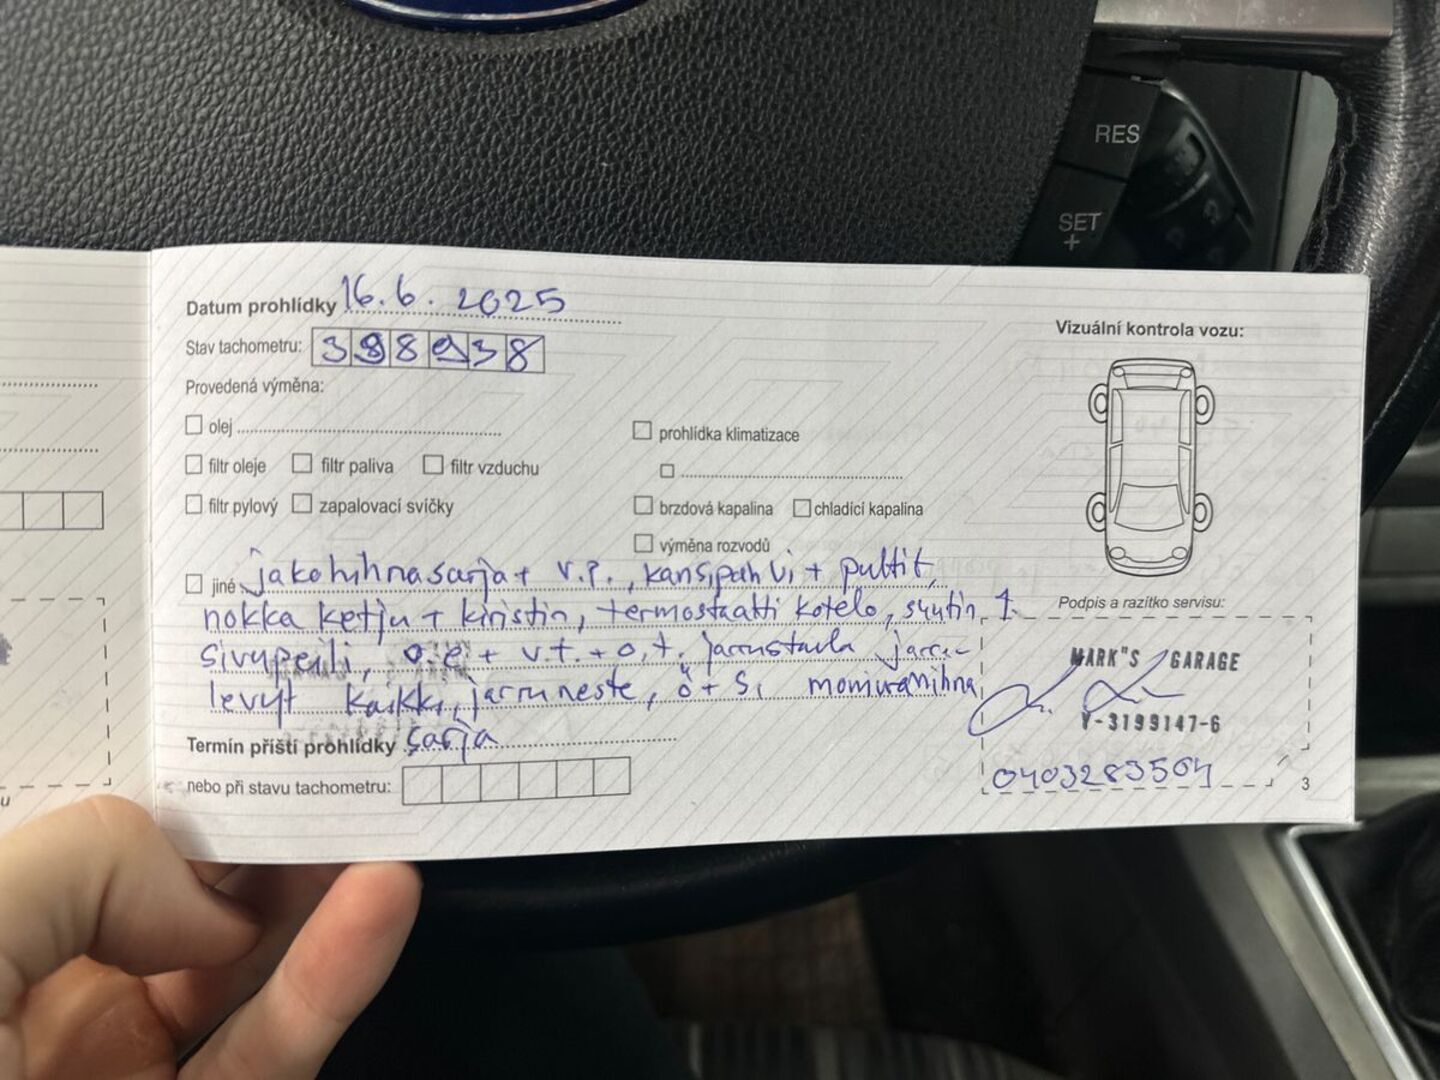 RES
SET
+
Datum prohlídky 16.6.2025
Vizuální kontrola vozu:
Stav tachometru: 398938
Provedená výměna:
olej
prohlídka klimatizace
filtr oleje filtr paliva filtr vzduchu
filtr pylový zapalovací svíčky
brzdová kapalina chladící kapalina
výměna rozvodů
jiné jakohihnasarja + v.p., kansipahvi + pultit,
nokka ketju + kiristin, termostaatti kotelo, syytin 1.
Podpis a razítko servisu:
sivupeili, o.e + v.t. + o.t. jarrusatula jarru-
MARK"S GARAGE
levyt kaikki, jarruneste, ö+s, moniurahihna
Y-3199147-6
Termín příští prohlídky sarja
nebo při stavu tachometru:
0403283504
3